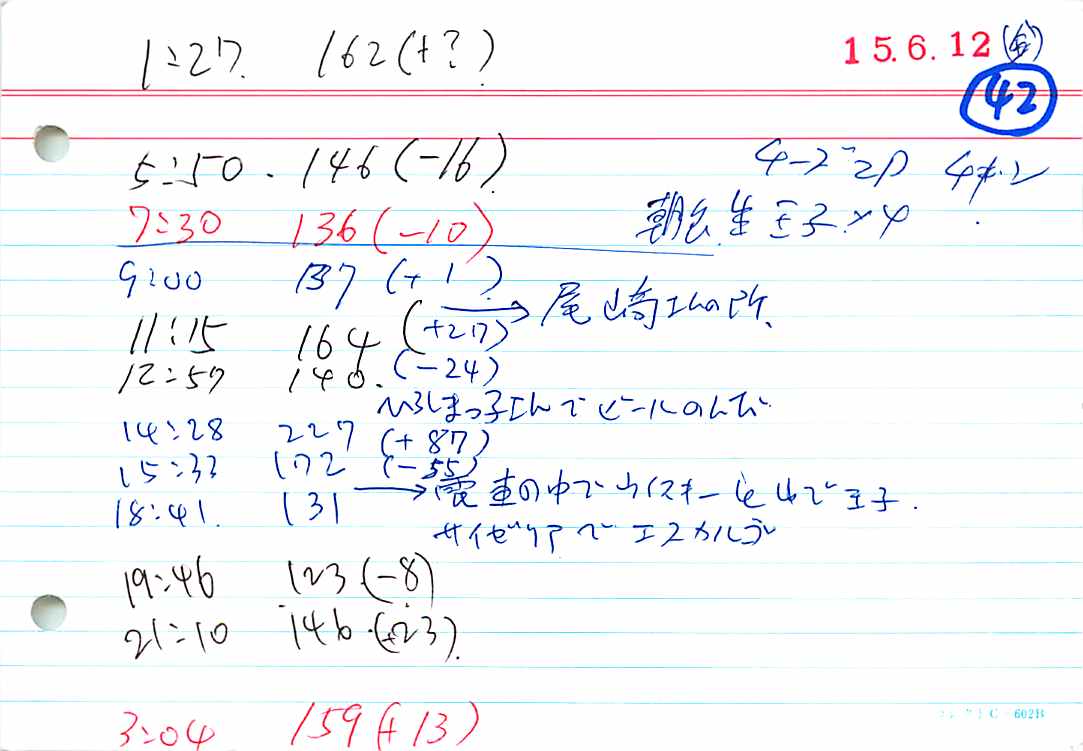 1:27 162(+?)
15.6.12(金)
42
5:50. 146(-16)
7:30 136(-10)
朝食 生 王子×4
9:00 137(+1)
11:15 164(+27)→尾崎さんの所
12:57 140.(-24)
ひろしまっ子さんでビールのんで
14:28 227(+87)
15:33 172(-55)
18:41. 131→電車の中でウイスキーをのんで王子.
サイゼリアでエスカルゴ
19:46 123(-8)
21:10 146.(+23).
3:04 159(+13)
C-602B